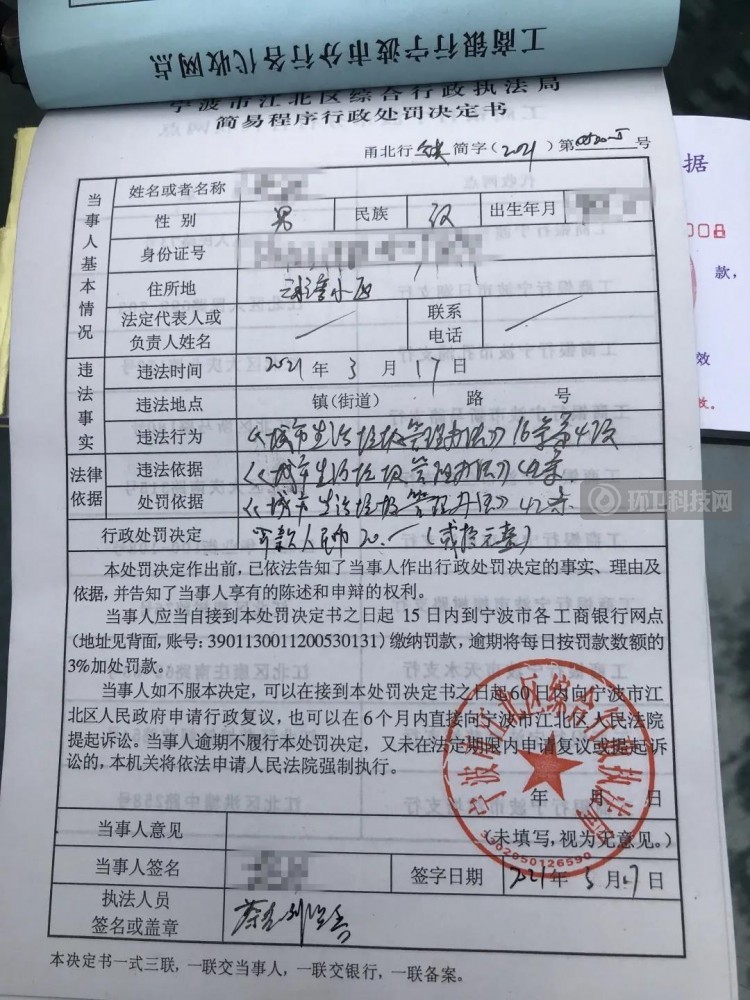 工商银行宁波市分行各代收网点
宁波市江北区综合行政执法局
简易程序行政处罚决定书
据
008
款，
效
效。
甬北行 简字（2021）第 号
当事人基本情况
姓名或者名称
性别 男 民族 汉 出生年月
身份证号
住所地 小区
法定代表人或
负责人姓名
联系
电话
违法事实
违法时间 2021年3月17日
违法地点 镇（街道） 路 号
违法行为 《城市生活垃圾管理办法》16条第4项
法律依据
违法依据 《城市生活垃圾管理办法》 条
处罚依据 《城市生活垃圾管理办法》42条
环卫科技网
行政处罚决定 罚款人民币20.-（贰拾元整）
本处罚决定作出前，已依法告知了当事人作出行政处罚决定的事实、理由及
依据，并告知了当事人享有的陈述和申辩的权利。
当事人应当自接到本处罚决定书之日起 15 日内到宁波市各工商银行网点
（地址见背面，账号：3901130011200530131）缴纳罚款，逾期将每日按罚款数额的
3%加处罚款。
当事人如不服本决定，可以在接到本处罚决定书之日起60日内向宁波市江
北区人民政府申请行政复议，也可以在 6 个月内直接向宁波市江北区人民法院
提起诉讼。当事人逾期不履行本处罚决定，又未在法定期限内申请复议或提起诉
讼的，本机关将依法申请人民法院强制执行。
宁波市江北区综合行政执法局
年 月 日
当事人意见 （未填写，视为无意见。）
当事人签名 签字日期 2021年3月17日
执法人员
签名或盖章
本决定书一式三联，一联交当事人，一联交银行，一联备案。